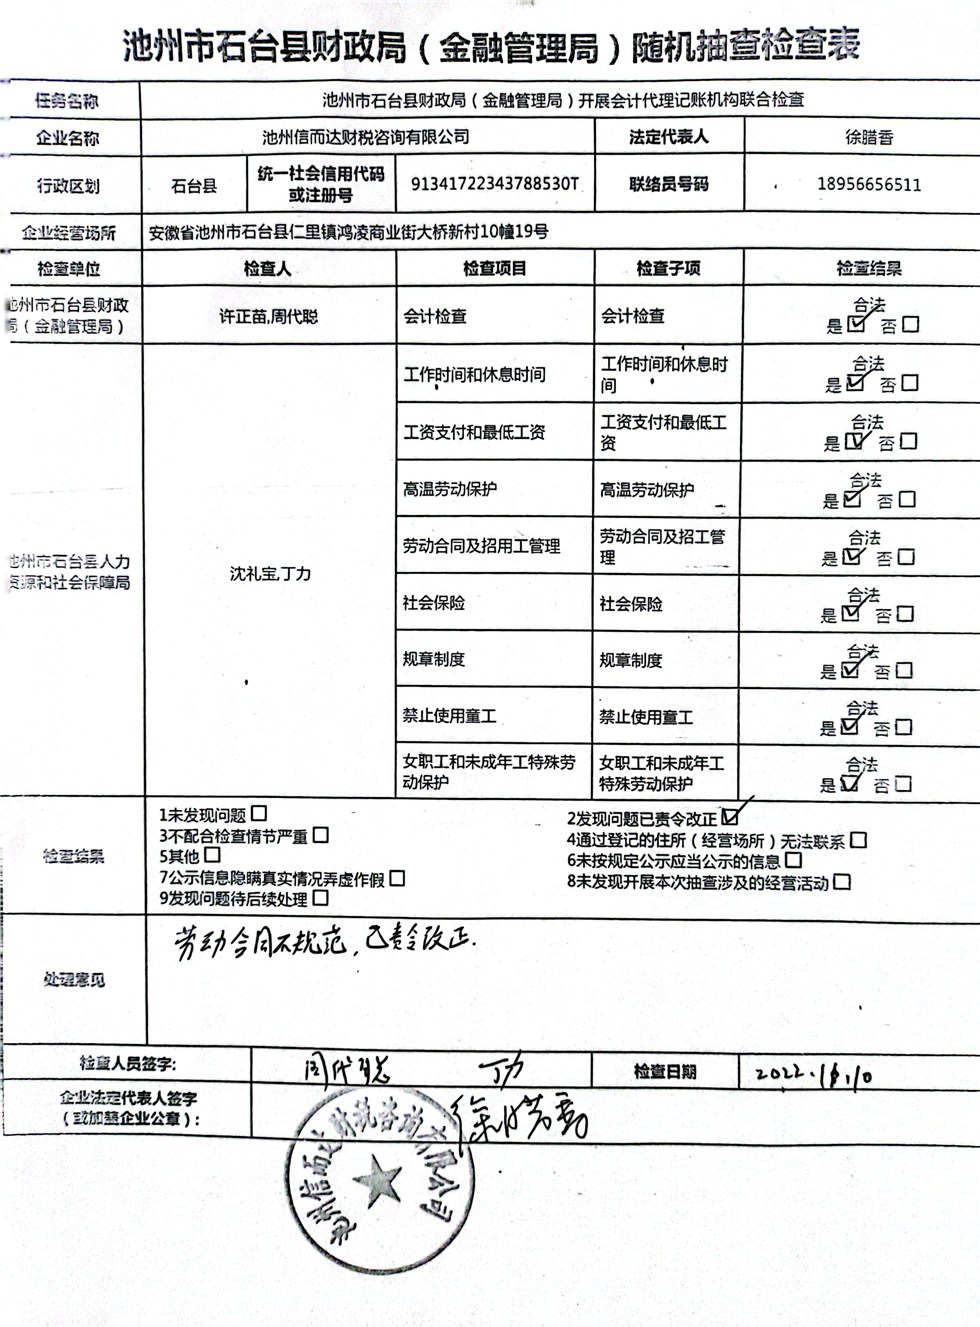 池州市石台县财政局（金融管理局）随机抽查检查表
任务名称 池州市石台县财政局（金融管理局）开展会计代理记账机构联合检查
企业名称 池州信而达财税咨询有限公司 法定代表人 徐腊香
行政区划 石台县 统一社会信用代码 91341722343788530T 联络员号码 18956656511
或注册号
企业经营场所 安徽省池州市石台县仁里镇鸿凌商业街大桥新村10幢19号
检查单位 检查人 检查项目 检查子项 检查结果
池州市石台县财政
局（金融管理局）
许正苗,周代聪 会计检查 会计检查 合法
是☑ 否□
池州市石台县人力
资源和社会保障局
沈礼宝,丁力
工作时间和休息时间 工作时间和休息时
间
合法
是☑ 否□
工资支付和最低工资 工资支付和最低工
资
合法
是☑ 否□
高温劳动保护 高温劳动保护 合法
是☑ 否□
劳动合同及招用工管理 劳动合同及招工管
理
合法
是☑ 否□
社会保险 社会保险 合法
是☑ 否□
规章制度 规章制度 合法
是☑ 否□
禁止使用童工 禁止使用童工 合法
是☑ 否□
女职工和未成年工特殊劳
动保护
女职工和未成年工
特殊劳动保护
合法
是☑ 否□
检查结果
1未发现问题□ 2发现问题已责令改正☑
3不配合检查情节严重□ 4通过登记的住所（经营场所）无法联系□
5其他□ 6未按规定公示应当公示的信息□
7公示信息隐瞒真实情况弄虚作假□ 8未发现开展本次抽查涉及的经营活动□
9发现问题待后续处理□
处理意见 劳动合同不规范,已责令改正.
检查人员签字: 周代聪 丁力 检查日期
企业法定代表人签字
（或加盖企业公章）:
池州信而达财税咨询有限公司